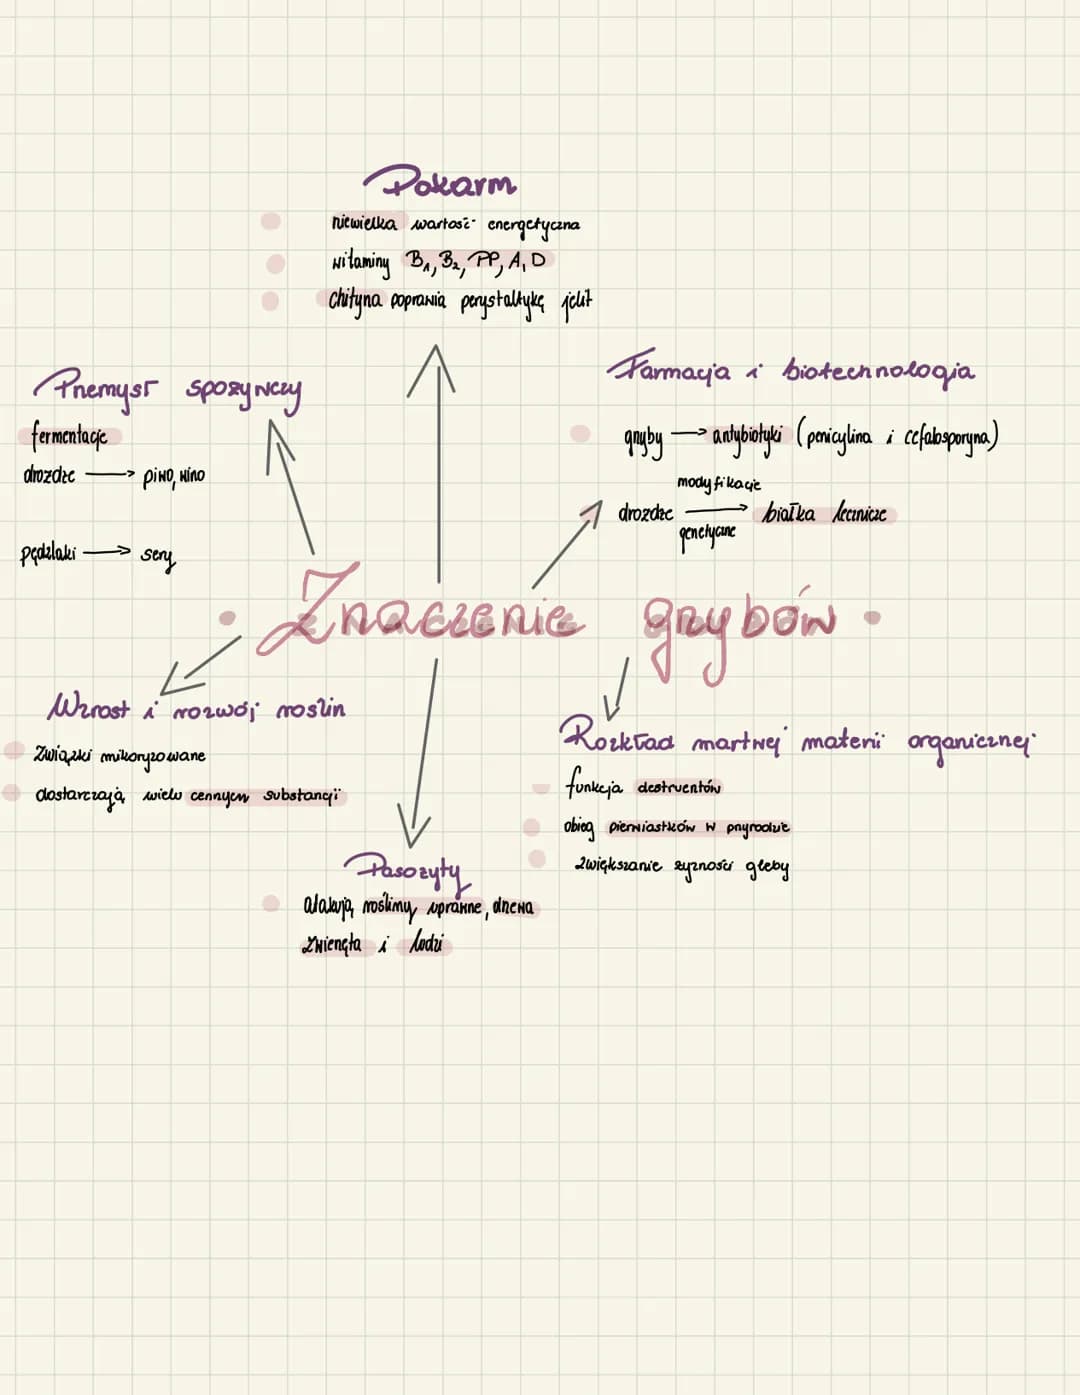 Pokarm
niewielka wartość energetyczna
witaminy B₁, B₂, PP, A, D
chityna poprawia perystaltykę jelit
Przemysł spożywczy
fermentacje
drożdże → piwo, wino
pędzlaki → sery
Farmacja i biotechnologia
grzyby → antybiotyki (penicylina i cefalosporyna)
modyfikacje
drożdże → białka lecznicze
genetyczne
Znaczenie grzybów
Wzrost i rozwój roślin
Związki mikoryzowane
dostarczają wielu cennych substancji
Rozkład martwej materii organicznej
funkcja destruentów
obieg pierwiastków w przyrodzie
zwiększanie żyzności gleby
Pasożyty
atakują rośliny uprawne, drzewa
zwierzęta i ludzi